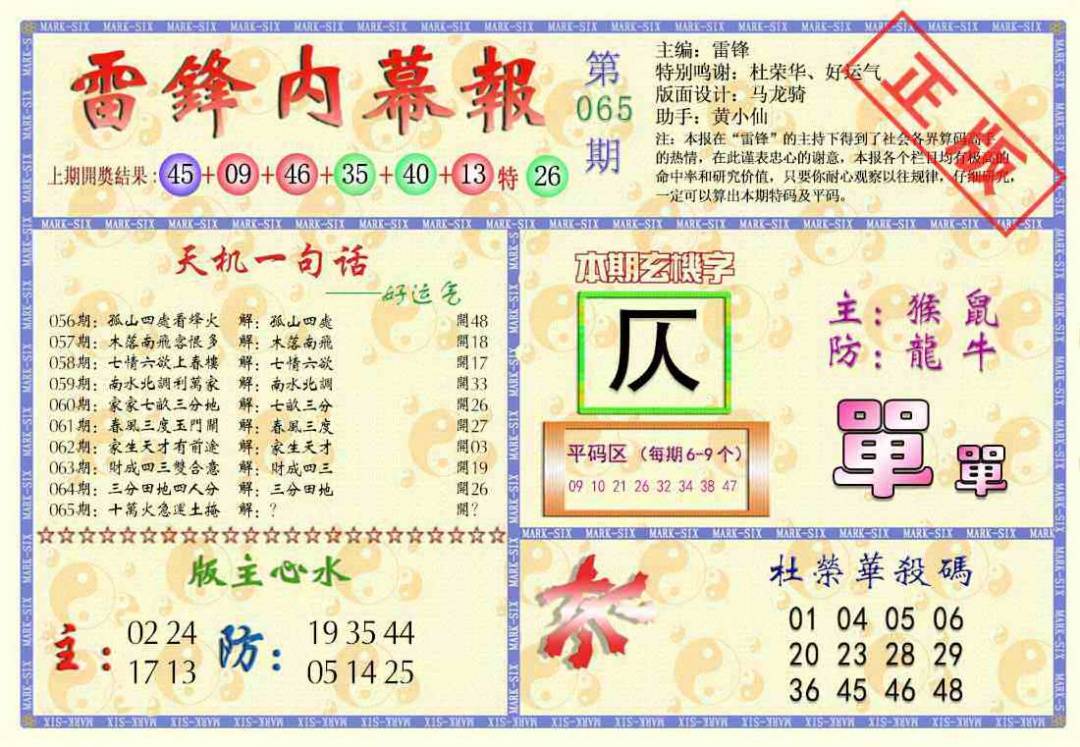 雷鋒内幕報
第
065
期
主编：雷锋
特别鸣谢：杜荣华、好运气
版面设计：马龙骑
助手：黄小仙
注：本报在“雷锋”的主持下得到了社会各界算码高手
的热情，在此谨表忠心的谢意，本报各个栏目均有极高的
命中率和研究价值，只要你耐心观察以往规律，仔细研究，
一定可以算出本期特码及平码。
正版
上期開獎結果：45+09+46+35+40+13特26
天机一句话
——好运气
056期：孤山四處看烽火 解：孤山四處 開48
057期：木落南飛客恨多 解：木落南飛 開18
058期：七情六欲上春樓 解：七情六欲 開17
059期：南水北調利萬家 解：南水北調 開33
060期：家家七畝三分地 解：七畝三分 開26
061期：春風三度玉門關 解：春風三度 開27
062期：家生天才有前途 解：家生天才 開03
063期：財成四三雙合意 解：財成四三 開19
064期：三分田地四人分 解：三分田地 開26
065期：十萬火急運土掩 解：？ 開？
本期玄機字
仄
主：猴 鼠
防：龍 牛
單
單
平码区（每期6-9个）
09 10 21 26 32 34 38 47
版主心水
主：
02 24
17 13
防：
19 35 44
05 14 25
杜榮華殺碼
01 04 05 06
20 23 28 29
36 45 46 48
MARK-SIX